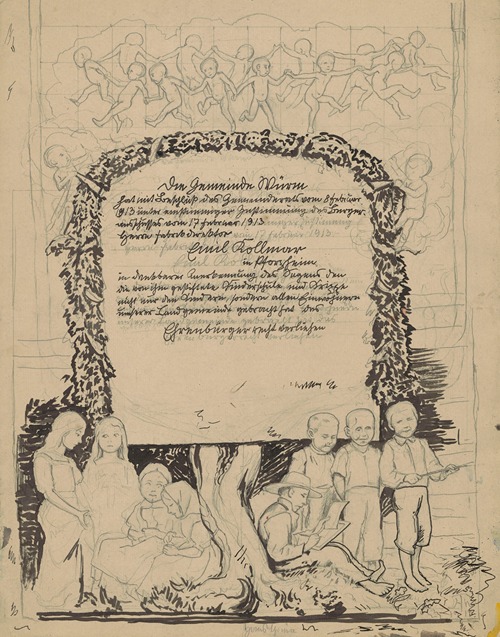 Die Gemeinde Würm
hat mit Beschluß des Gemeinderats vom 8 Februar
1913 unter einstimmiger Zustimmung des Bürger
ausschusses vom 17 Februar 1913
Herrn Fabrikdirektor
Emil Kollmar
in Pforzheim
in dankbarer Anerkennung des Segens den
die von ihm gestiftete Kinderschule und Krippe
nicht nur den Kindern, sondern allen Einwohnern
unserer Landgemeinde gebracht hat das
Ehrenbürgerrecht verliehen